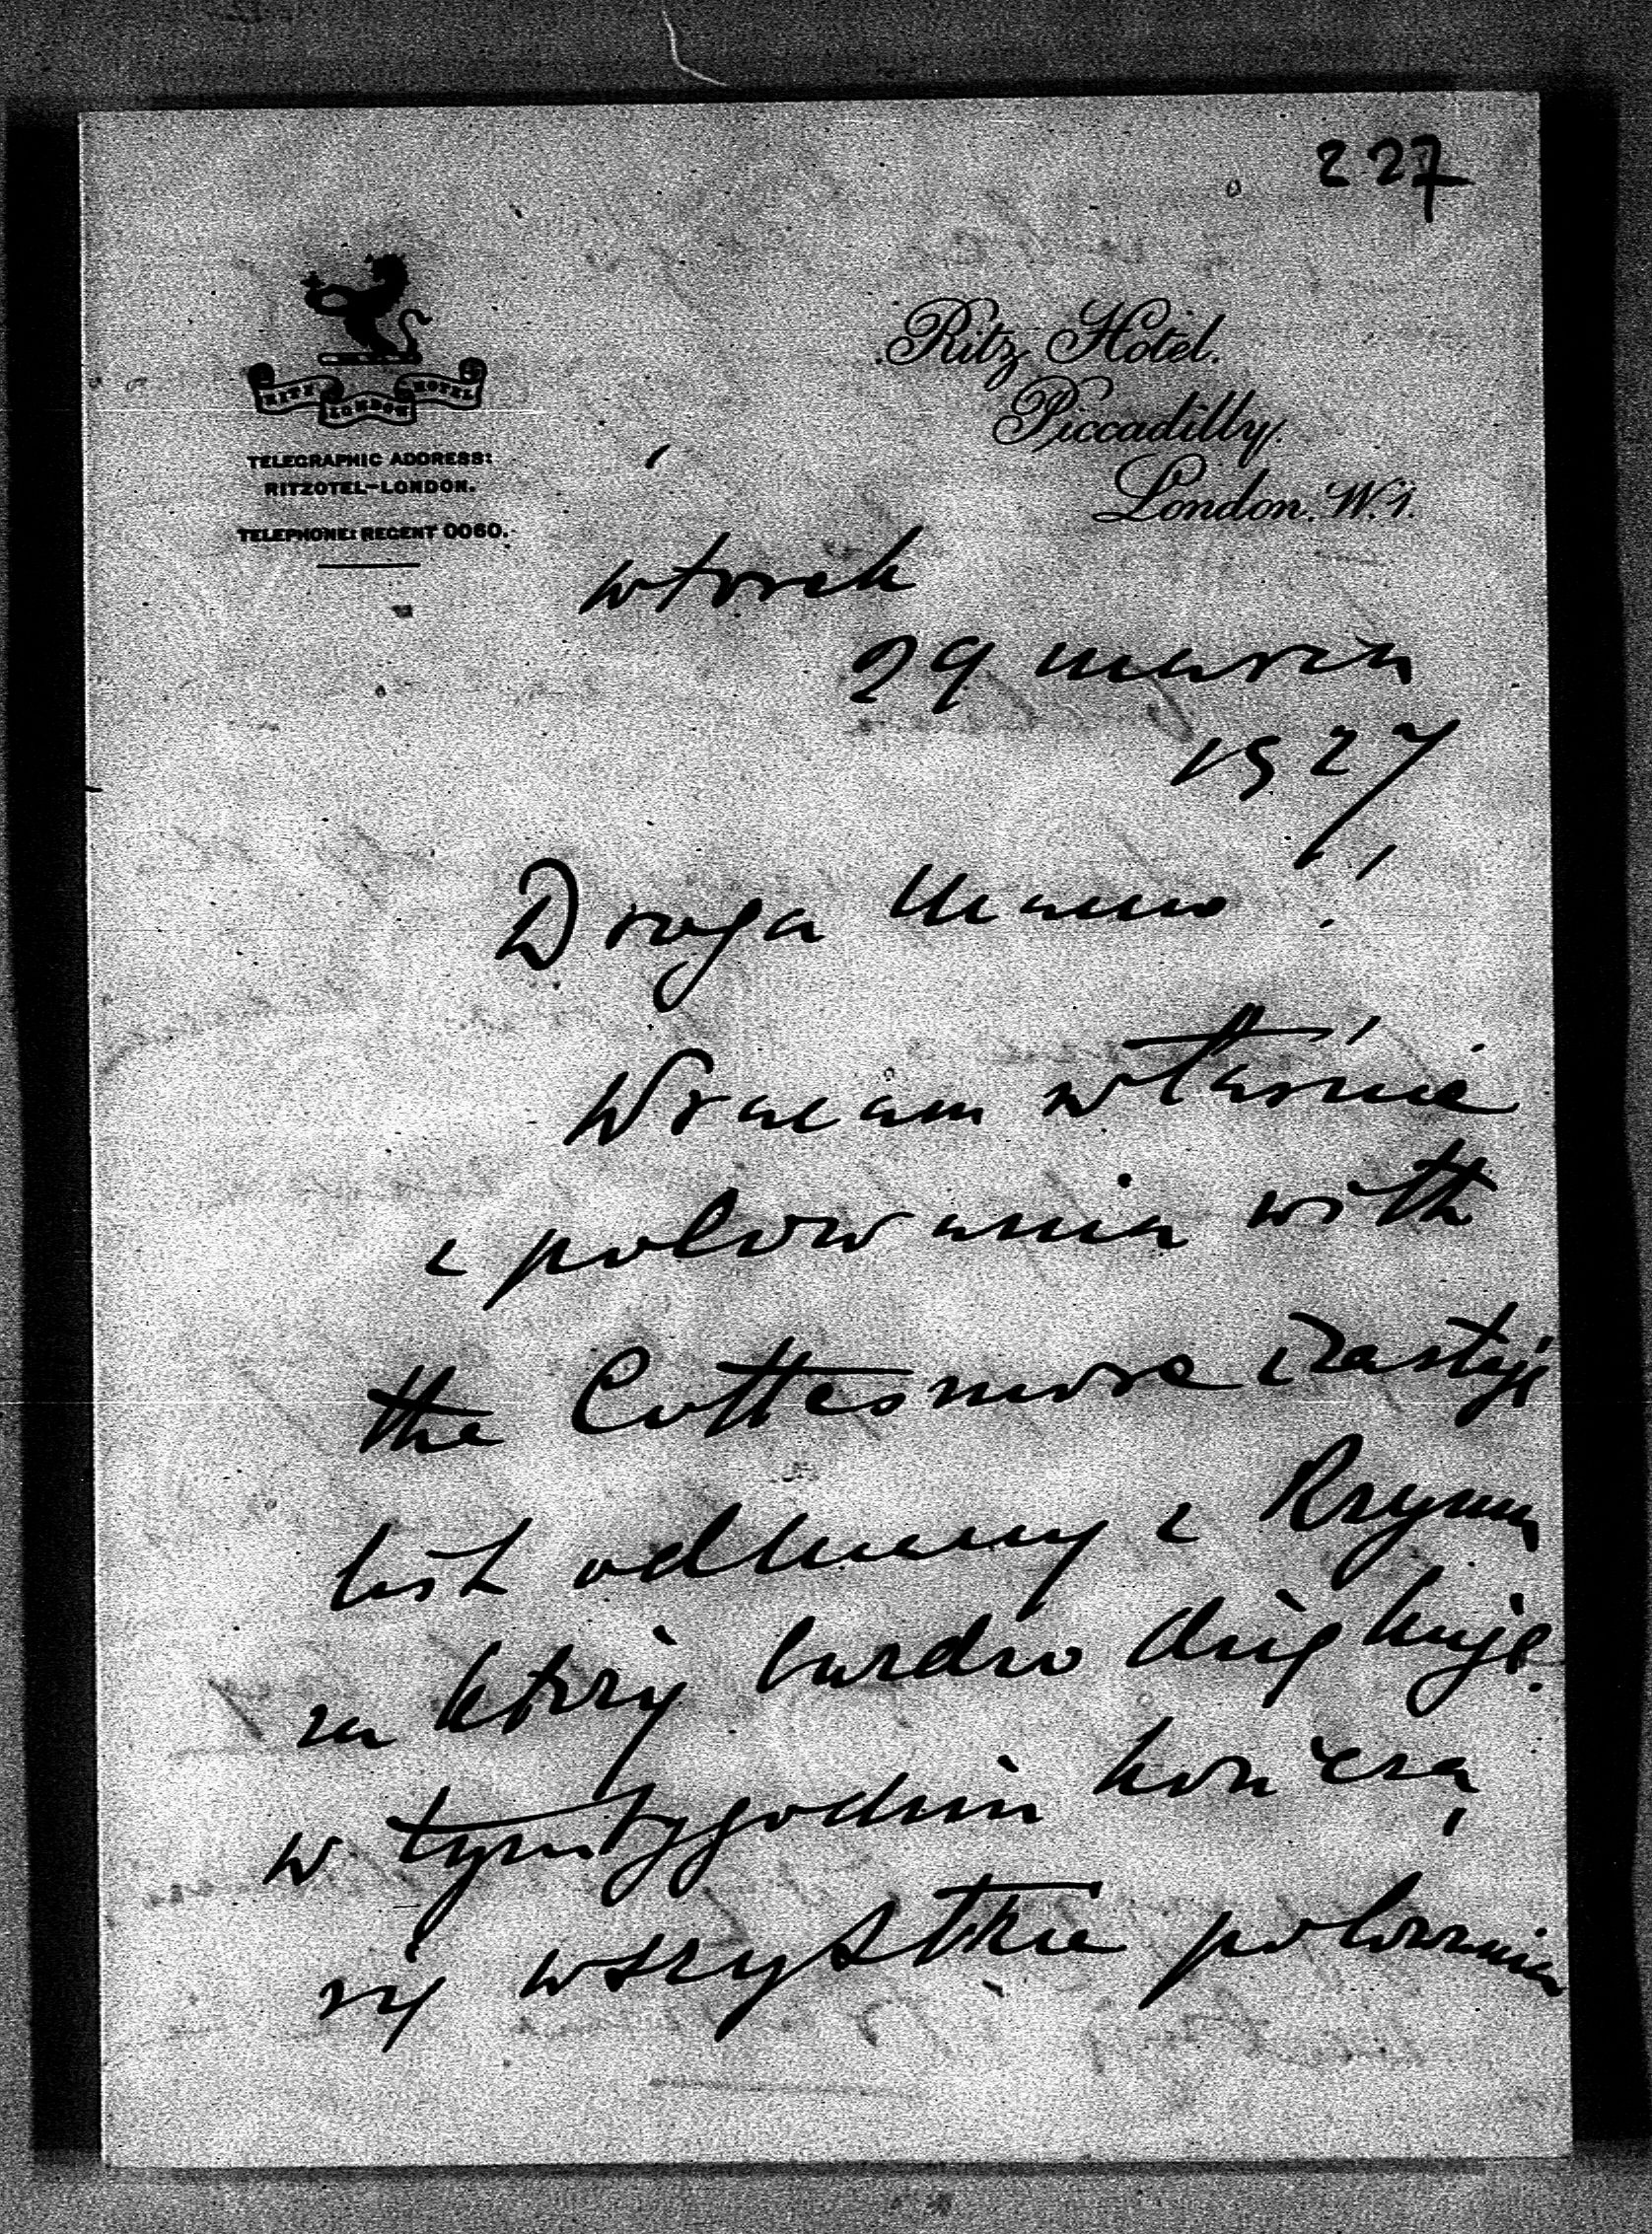 227
RITZ HOTEL
LONDON
TELEGRAPHIC ADDRESS:
RITZOTEL-LONDON.
TELEPHONE: REGENT 0060.
Ritz Hotel.
Piccadilly.
London. W.1.
wtorek
29 marca
1927
Droga Mamo!
Wracam właśnie
z polowania with
the Cottesmore i zastaję
list od Mamy z Rzymu
za który bardzo dziękuję.
w tym tygodniu kończą
się wszystkie polowania